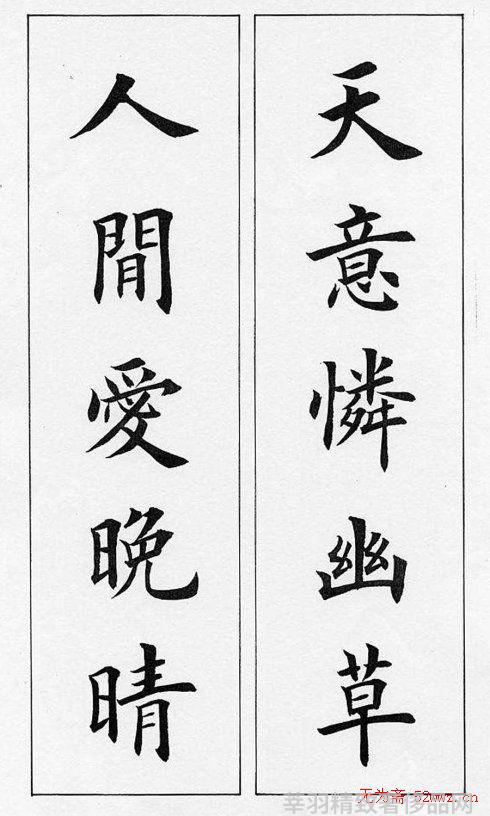 天意憐幽草
人間愛晚晴
无为斋 52wwz.cn
莘羽精致奢侈品网